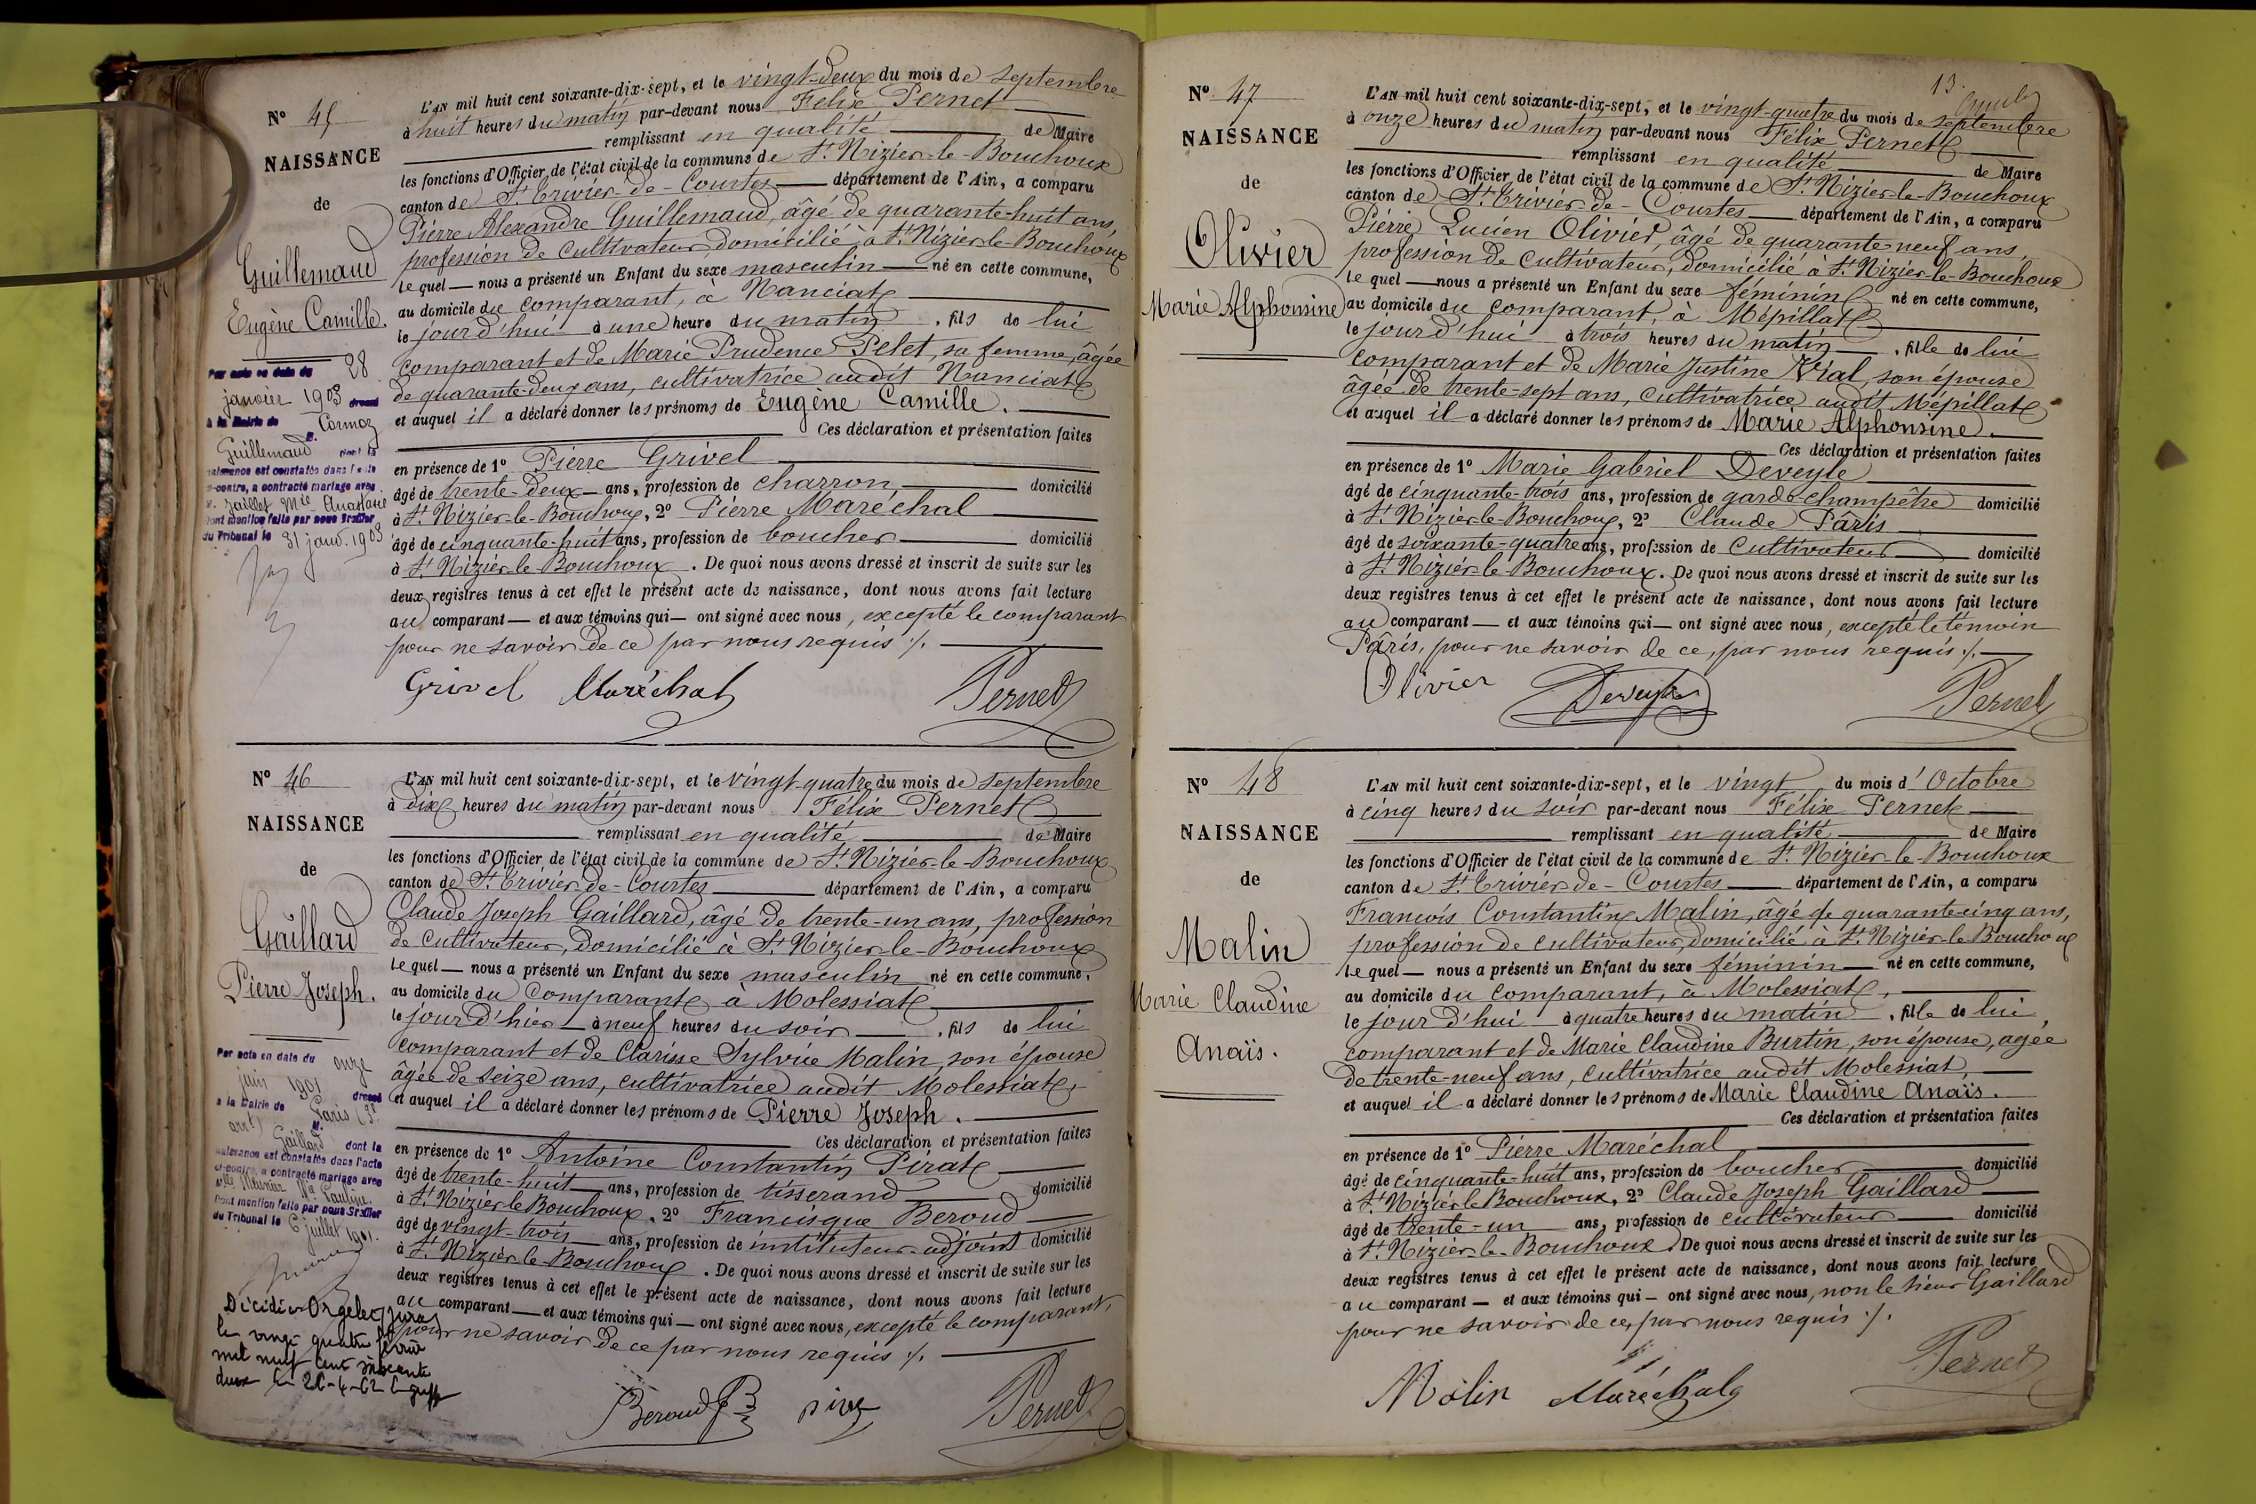 N° 45
NAISSANCE
de
Guillemaud
Eugène Camille.
Par acte en date du 28
janvier 1903 dressé
à la Mairie de Cormoz
M. Guillemaud dont la
naissance est constatée dans l'acte
ci-contre, a contracté mariage avec
Jaillet Mie Anastasie
Dont mention faite par nous Greffier
du Tribunal le 31 janv. 1903
L'AN mil huit cent soixante-dix-sept, et le vingt-deux du mois de septembre
à huit heures du matin par-devant nous Félix Pernet
remplissant en qualité de Maire
les fonctions d'Officier de l'état civil de la commune de St Nizier-le-Bouchoux
canton de St Trivier-de-Courtes département de l'Ain, a comparu
Pierre Alexandre Guillemaud, âgé de quarante-huit ans,
profession de cultivateur domicilié à St Nizier-le-Bouchoux
lequel nous a présenté un Enfant du sexe masculin né en cette commune,
au domicile du comparant, à Nanciat
le jourd'hui à une heure du matin, fils de lui
comparant et de Marie Prudence Pelet, sa femme, âgée
de quarante-deux ans, cultivatrice audit Nanciat
et auquel il a déclaré donner les prénoms de Eugène Camille.
Ces déclaration et présentation faites
en présence de 1° Pierre Grivel
âgé de trente-deux ans, profession de charron domicilié
à St Nizier-le-Bouchoux, 2° Pierre Maréchal
âgé de cinquante-huit ans, profession de boucher domicilié
à St Nizier-le-Bouchoux. De quoi nous avons dressé et inscrit de suite sur les
deux registres tenus à cet effet le présent acte de naissance, dont nous avons fait lecture
au comparant et aux témoins qui ont signé avec nous, excepté le comparant
pour ne savoir de ce par nous requis ./.
Grivel Maréchal Pernet
N° 46
NAISSANCE
de
Gaillard
Pierre Joseph.
Par acte en date du onze
juin 1901 dressé
à la Mairie de Paris
M. Gaillard dont la
naissance est constatée dans l'acte
ci-contre, a contracté mariage avec
Pauline
Dont mention faite par nous Greffier
du Tribunal le 6 juillet 1901.
Décédé à Orgelet Jura
le vingt quatre février
mil neuf cent soixante
deux le 26-4-62
L'AN mil huit cent soixante-dix-sept, et le vingt-quatre du mois de septembre
à dix heures du matin par-devant nous Félix Pernet
remplissant en qualité de Maire
les fonctions d'Officier de l'état civil de la commune de St Nizier-le-Bouchoux
canton de St Trivier-de-Courtes département de l'Ain, a comparu
Claude Joseph Gaillard, âgé de trente-un ans, profession
de cultivateur, domicilié à St Nizier-le-Bouchoux
lequel nous a présenté un Enfant du sexe masculin né en cette commune,
au domicile du comparant à Molessiat
le jour d'hier à neuf heures du soir, fils de lui
comparant et de Clarisse Sylvie Malin, son épouse
âgée de seize ans, cultivatrice audit Molessiat,
et auquel il a déclaré donner les prénoms de Pierre Joseph.
Ces déclaration et présentation faites
en présence de 1° Antoine Constantin Pirat
âgé de trente-huit ans, profession de tisserand domicilié
à St Nizier le Bouchoux, 2° Francisque Beroud
âgé de vingt-trois ans, profession de instituteur-adjoint domicilié
à St Nizier-le-Bouchoux. De quoi nous avons dressé et inscrit de suite sur les
deux registres tenus à cet effet le présent acte de naissance, dont nous avons fait lecture
au comparant et aux témoins qui ont signé avec nous, excepté le comparant,
pour ne savoir de ce par nous requis ./.
Beroud Pernet
13.
N° 47
NAISSANCE
de
Olivier
Marie Alphonsine
L'AN mil huit cent soixante-dix-sept, et le vingt-quatre du mois de septembre
à onze heures du matin par-devant nous Félix Pernet
remplissant en qualité de Maire
les fonctions d'Officier de l'état civil de la commune de St Nizier-le-Bouchoux
canton de St Trivier-de-Courtes département de l'Ain, a comparu
Pierre Lucien Olivier, âgé de quarante-neuf ans,
profession de cultivateur, domicilié à St Nizier-le-Bouchoux
lequel nous a présenté un Enfant du sexe féminin né en cette commune,
au domicile du comparant, à Mépillat
le jourd'hui à trois heures du matin, fille de lui
comparant et de Marie Justine Vial, son épouse
âgée de trente-sept ans, cultivatrice audit Mépillat
et auquel il a déclaré donner les prénoms de Marie Alphonsine.
Ces déclaration et présentation faites
en présence de 1° Marie Gabriel Deveyle
âgé de cinquante-trois ans, profession de garde-champêtre domicilié
à St Nizier-le-Bouchoux, 2° Claude Pâris
âgé de soixante-quatre ans, profession de cultivateur domicilié
à St Nizier-le-Bouchoux. De quoi nous avons dressé et inscrit de suite sur les
deux registres tenus à cet effet le présent acte de naissance, dont nous avons fait lecture
au comparant et aux témoins qui ont signé avec nous, excepté le témoin
Pâris, pour ne savoir de ce, par nous requis ./.
Olivier Deveyle Pernet
N° 48
NAISSANCE
de
Malin
Marie Claudine
Anaïs.
L'AN mil huit cent soixante-dix-sept, et le vingt du mois d'Octobre
à cinq heures du soir par-devant nous Félix Pernet
remplissant en qualité de Maire
les fonctions d'Officier de l'état civil de la commune de St Nizier-le-Bouchoux
canton de St Trivier-de-Courtes département de l'Ain, a comparu
François Constantin Malin, âgé de quarante-cinq ans,
profession de cultivateur, domicilié à St Nizier-le-Bouchoux
lequel nous a présenté un Enfant du sexe féminin né en cette commune,
au domicile du comparant, à Molessiat,
le jour d'hui à quatre heures du matin, fille de lui,
comparant et de Marie Claudine Burtin, son épouse, agée
de trente-neuf ans, cultivatrice audit Molessiat,
et auquel il a déclaré donner les prénoms de Marie Claudine Anaïs.
Ces déclaration et présentation faites
en présence de 1° Pierre Maréchal
âgé de cinquante-huit ans, profession de boucher domicilié
à St Nizier le Bouchoux, 2° Claude Joseph Gaillard
âgé de trente-un ans, profession de cultivateur domicilié
à St Nizier-le-Bouchoux. De quoi nous avons dressé et inscrit de suite sur les
deux registres tenus à cet effet le présent acte de naissance, dont nous avons fait lecture
au comparant et aux témoins qui ont signé avec nous, non le sieur Gaillard
pour ne savoir de ce, par nous requis ./.
Malin Maréchal Pernet